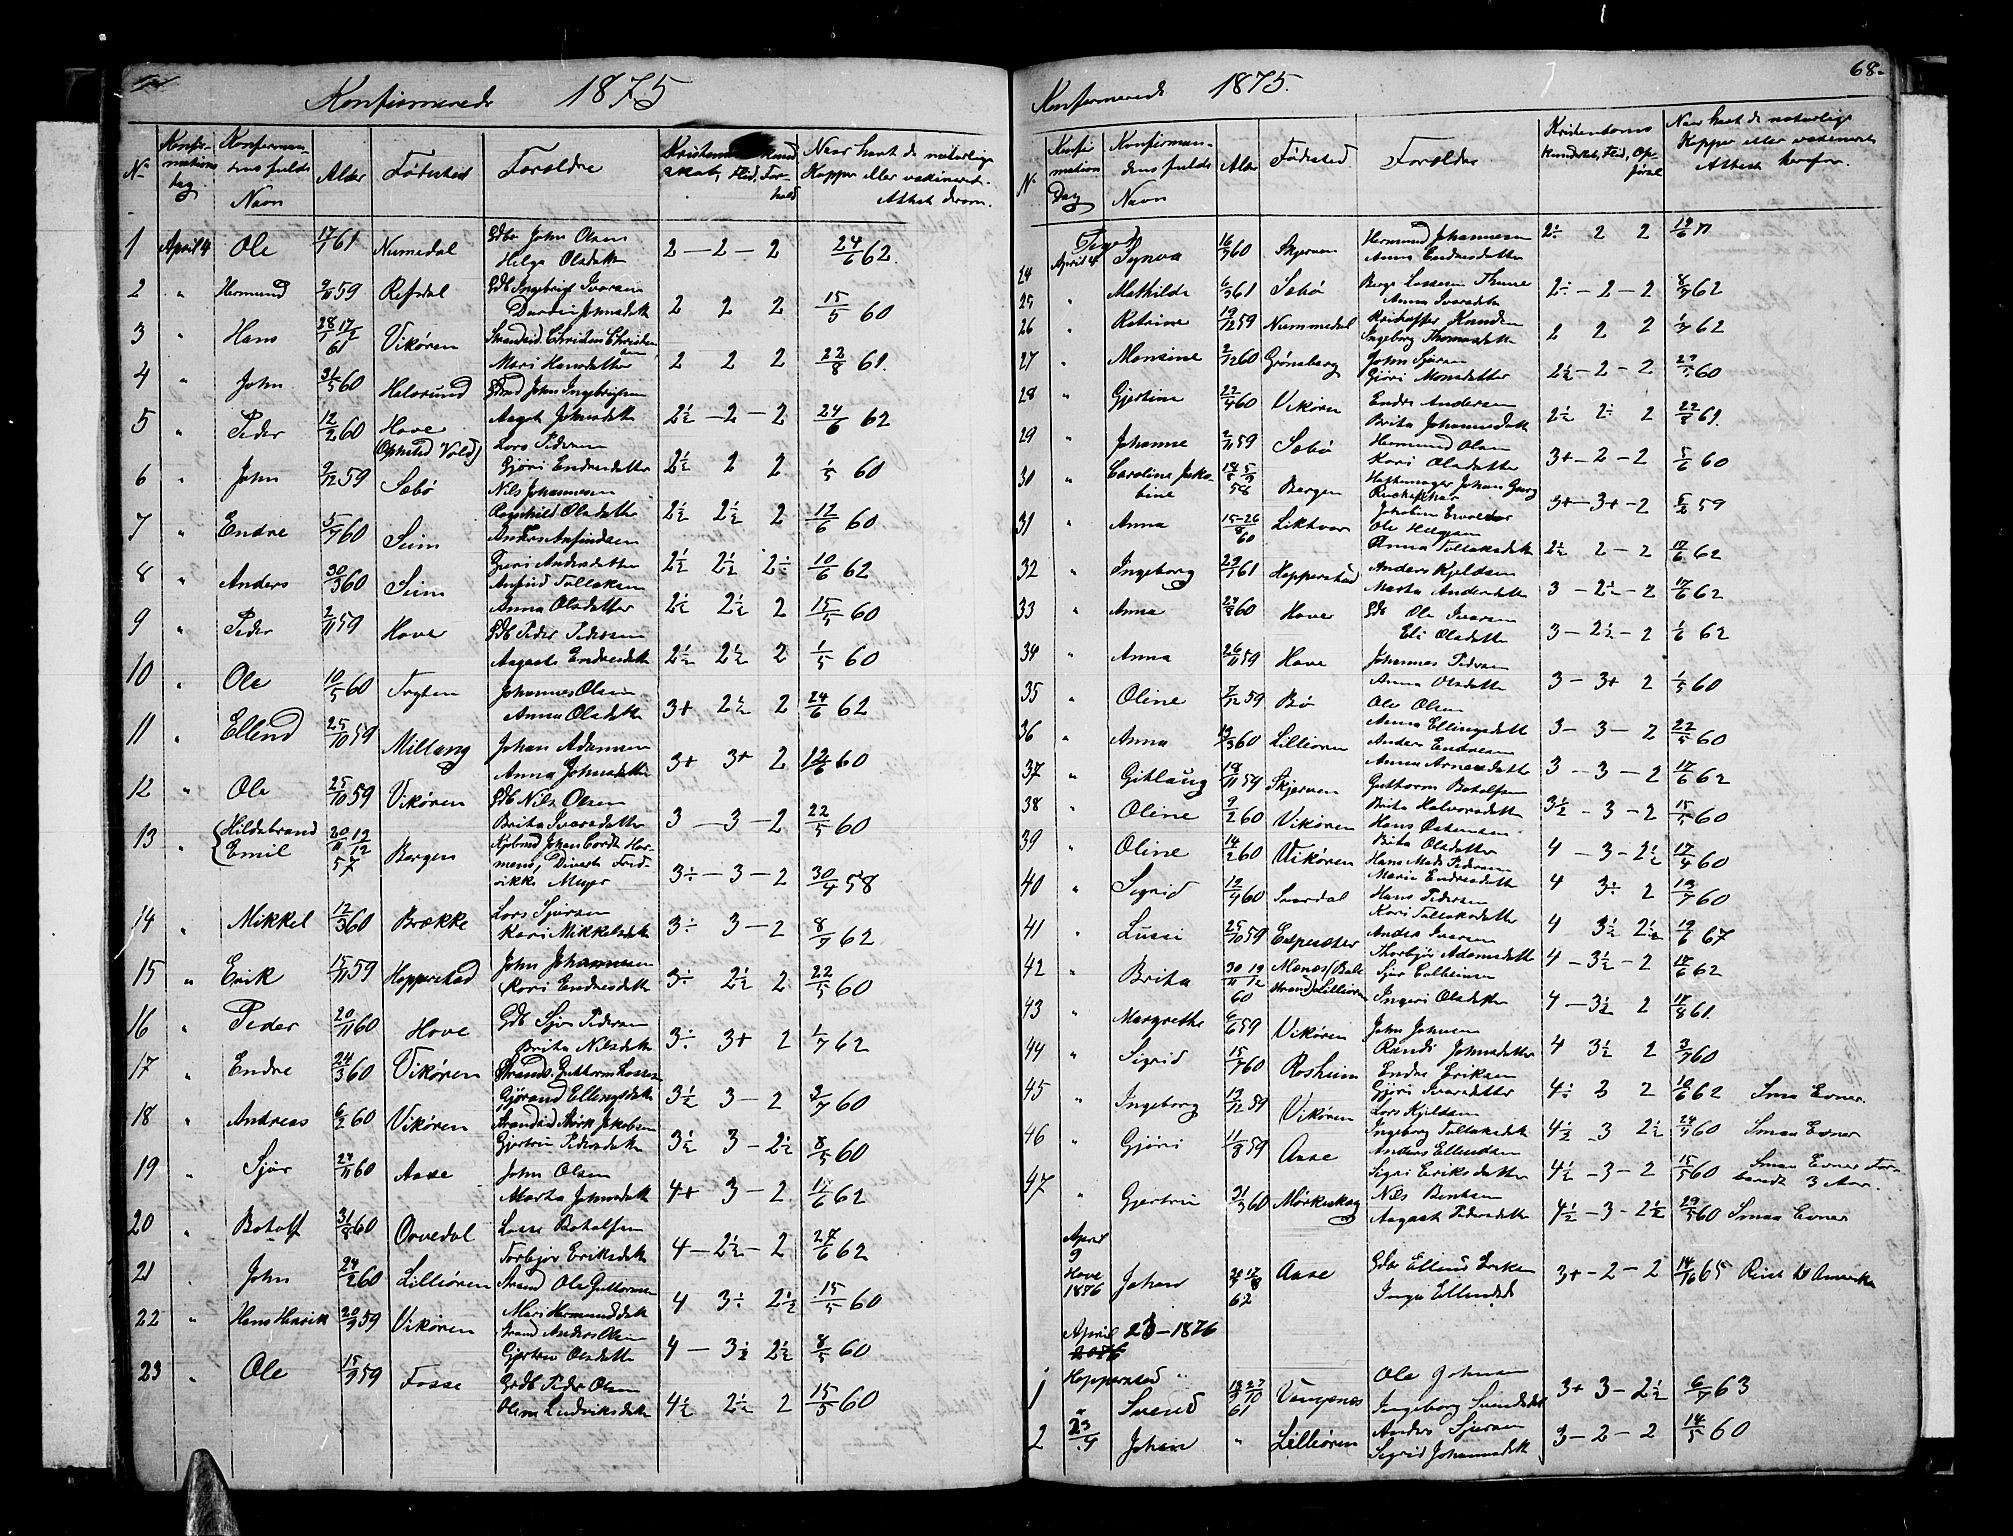 Konfirmerede 1875
No
Konfirmations dag
Konfirmandens fulde Navn
Alder
Fødested
Forældre
Naar havt de naturlige Kopper eller vakineret. Attest derom.
1 April 4 Ole 17/1 61 Numedal Gdbr John Olsen Helga Olsdatter 2 – 2 – 2 24/6 62.
2 " Hermund 2/11 59 Refsdal Gdb Ingebrigt Ivarsen Johnsdatt 2 2 2 15/5 60
3 " Hans 61 Vikøren Strandsid. Christen Christensen Mari Hansdatter 2 2 2 22/8 61.
4 " John 31/5 60 Halsrund John Ingebrigtsen Aagot Johnsdatt 2½ – 2 – 2 24/6 62
5 " Peder 12/2 60 Hove (Opfosted Vold) Lars Pedersen Gjøri Endresdatter 2½ 2 2 1/5 60
6 " John 2/12 59 Sæbø Nils Johannesen Ragnhild Olsdatter 2½ 2½ 2 12/6 60
7 " Endre 5/7 60 Seim Anders Anfindsen Andersdatter 2½ 2½ 2÷ 10/6 62
8 " Anders 30/3 60 Seim Anfind Tollaksen Anna Olsdatter 2½ 2½ 2 15/5 60
9 " Peder 2/11 59 Hove Gdb Peder Pedersen Aagaata Endresdatt 2½ 2½ 2 1/5 60
10 " Ole 10/5 60 Tryten Johannes Olsen Anna Olsdatter 3+ 2½ 2 24/6 62
11 " Ellend 25/10 59 Millang Johan Adamsen Anna Johnsdatter 3+ 3+ 2 12/6 60
12 " Ole 25/10 59 Vikøren Gdb Nils Olsen Brita Ivarsdatter 3 – 3 – 2 22/5 60
13 " Hildebrand Emil 20/11 19/12 57 Bergen Kjøbmd Johan Cordt Harmens, Diverta Fredrikke Meyer 3÷ – 3 – 2 30/4 58
14 " Mikkel 12/3 60 Brække Lars Sjursen Kari Mikkelsdatt 3÷ 3 – 2 8/7 62
15 " Erik 15/11 59 Hopperstad John Johannesen Kari Endresdatt 3÷ 2½ 2 22/5 60
16 " Peder 20/11 60 Hove Gdb Sjur Pedersen Brita Nilsdatt 3÷ 3+ 2 1/7 62
17 " Endre 24/3 60 Vikøren Strands. Guttorm Lassesen Gjørand Ellingsdatt 3½ 3 – 2 3/7 60
18 " Andreas 6/2 60 Vikøren Strandsid Mørk Jakobsen Gjertrin Pedersdatter 3½ 3 – 2½ 8/5 60
19 " Sjur 24/11 60 Aase John Olsen Marta Johnsdatt 4+ 3 – 2 17/6 62
20 " Botolf 31/8 60 Orvedal Lasse Botolfsen Torbjør Eriksdatt 4 – 2½ – 2 27/6 62
21 " John 24/2 60 Lilliøren Strand Ole Guttormsen Mari Hermundsdatt 4 3÷ 2½ 15/5 60
22 " Hans Henrik 20/9 59 Vikøren Strand Anders Olsen Gjertrin Olsdatter 4 – 3½ 2½ 8/5 60
23 " Ole 15/9 59 Fosse Grdb Peder Olsen Oline Ludviksdatt 4½ 2½ 2 15/5 60
68.
Konfirmerede 1875.
No
Konfirmations Dag
Konfirmandens fulde Navn
Alder
Fødested
Forældre
Kristendoms Kundskab, Flid, Opførsel
Naar havt de naturlige Kopper eller vakineret Attest herfor.
Piger
24 April 4 Synva 16/9 60 Skjerven Hermund Johannesen Anna Endresdatter 2÷ 2 2
25 " Mathilde 6/3 61 Sæbø Berge Lassesen Thune Anna Ivarsdatter 2÷ – 2 – 2 8/7 62
26 " Katrine 19/12 59 Nummedal Kristoffer Knudsen Ingeborg Thomasdatt 2 2 2 1/7 62
27 " Monsine 2/12 60 Grønsberg John Sjursen Gjøri Monsdatter 2½ – 2 – 2 60
28 " Gjertine 22/4 60 Vikøren Endre Andersen Brita Johannesdatt 2½ 2÷ 2 22/8 61.
29 " Johanne 2/11 59 Sæbø Hermund Olsen Kari Olsdatter 3+ – 2 – 2 5/6 60
30 " Caroline Jakobine 58 Bergen Hattemager Johan Georg 3+ – 3+ – 2 59
31 " Anna 60 Liktvor Ole Helgesen Anna Tollaksdatt 2½ 2 – 2 17/6 62
32 " Ingeborg 29/1 61 Hopperstad Anders Kjeldsen Marta Andersdatt 3 – 2½ – 2 17/6 62
33 " Anna 60 Hove Gdb Ole Ivarsen Eli Olsdatter 3 – 2½ – 2 1/6 62
34 " Anna 26/11 59 Hove Johannes Pedersen Anna Olsdatter 3 – 3+ 2 1/5 60
35 " Oline 7/12 59 Bø Ole Olsen Anna Ellingsdatt 3 – 3 – 2 22/5 60
36 " Anna 13/3 60 Lilliøren Anders Endresen Anna Arnesdatter 3 – 3 – 2 17/6 62
37 " Gitlaug 18/11 59 Skjerven Guttorm Botolfsen Brita Halvorsdatt 3½ – 3 – 2 15/5 60
38 " Oline 9/2 60 Vikøren Hans Brita Olsdatter 4 – 3 – 2½ 17/4 60
39 " Oline 14/2 60 Vikøren Hans Mads Pedersen Marie Endresdatt 4 3÷ 2 60
40 " Sigrid 19/4 60 Hans Pedersen Kari Tollaksdatter 4 3½ 2½ 19/6 67
41 " Lussi 25/10 59 Espesæter Anders Ivarsen Thorbjør Adamsdatt 4 – 3½ – 2 62
42 " Brita 30/11 19/12 60 Sjur Ingeri Olsdatter 4 – 3½ 2 61
43 " Margrethe 6/6 59 Vikøren John Johnsen Randi Johnsdatter 4 3½ 2 3/7 60
44 " Sigrid 15/7 60 Rosheim Endre Eriksen Gjøri Ivarsdatter 4÷ 3 2 10/6 62 Smaa Evner.
45 " Ingeborg 12/12 59 Vikøren Lars Kjeldsen Ingeborg Tollaksdatt 4½ – 3 2½ 60 Smaa Evner
46 " Gjøri 11/8 59 Aase Anders Ellendsen Sigri Eriksdatter 4½ – 3 – 2 15/5 60 Smaa Evner Forberedt 3 Aar.
47 " Gjertrin 31/3 60 Mørkeskog Nils Bentsen Aagaat Pedersdatter 4½ – 3 – 2½ 29/5 60 Smaa Evner
April 9 Hove 1876 Johan 62 Aase Gdbr Ellend Inga Ellendsd 3+ – 2 – 2 65 Reist til Amerika
April 23 – 1876
Hopperstad "
1 " Svend 61 Vangsnes Ole Johnsen Ingeborg Svendsdat 3+ 3 – 2½ 6/7 63
2 23/4 Johan " Lilliøren Anders Sjursen Sigrid Johannesdatt 3 – 2 – 2 14/5 60